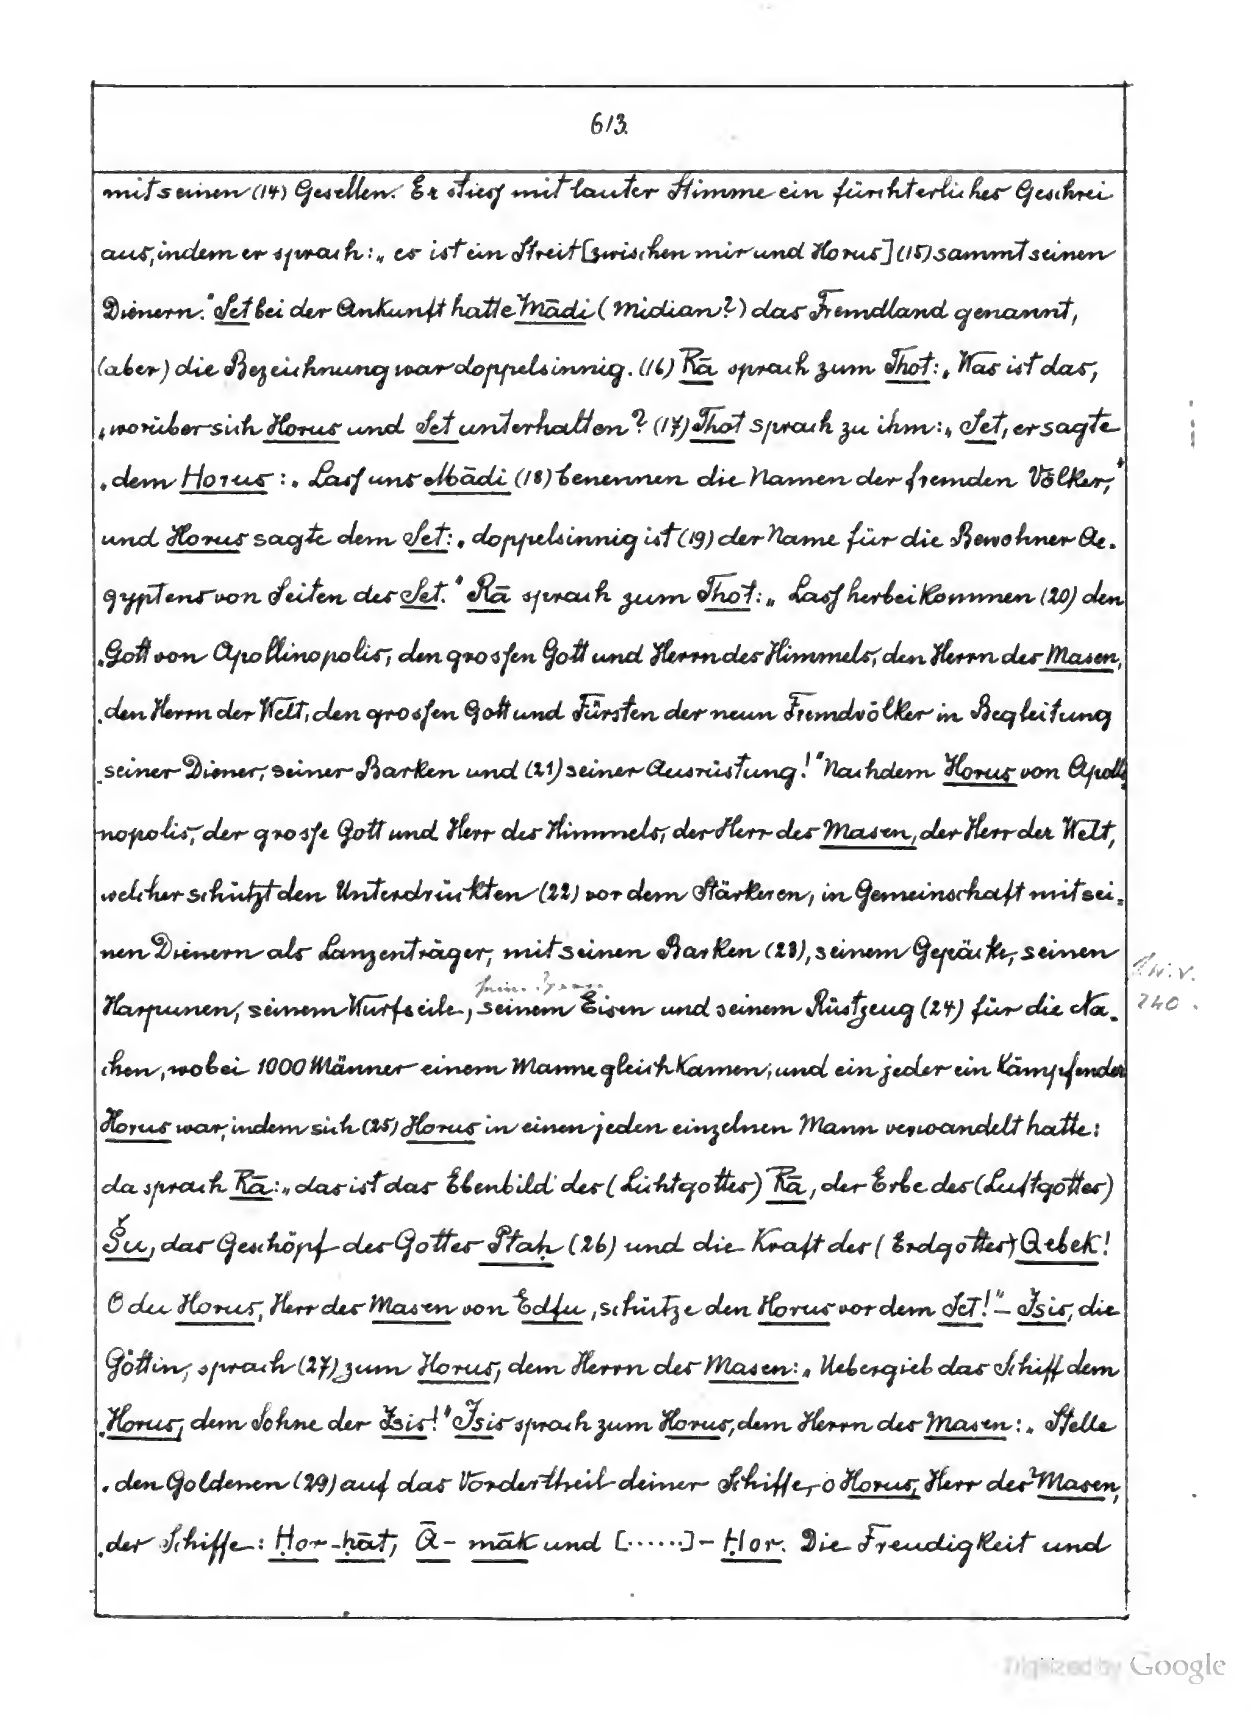 613.
mit seinen (14) Gesellen. Er stiess mit lauter Stimme ein fürchterliches Geschrei
aus, indem er sprach: „es ist ein Streit [zwischen mir und Horus] (15) sammt seinen
Dienern." Set bei der Ankunft hatte Mādi (Midian?) das Fremdland genannt,
(aber) die Bezeichnung war doppelsinnig. (16) Rā sprach zum Thot: „Was ist das,
„worüber sich Horus und Set unterhalten? (17) Thot sprach zu ihm: „Set, er sagte
„dem Horus: „Lass uns Mādi (18) benennen die Namen der fremden Völker,"
und Horus sagte dem Set: „doppelsinnig ist (19) der Name für die Bewohner Ae-
gyptens von Seiten des Set." Rā sprach zum Thot: „Lass herbeikommen (20) den
„Gott von Apollinopolis, den grossen Gott und Herrn des Himmels, den Herrn des Masen,
„den Herrn der Welt, den grossen Gott und Fürsten der neun Fremdvölker in Begleitung
„seiner Diener, seiner Barken und (21) seiner Ausrüstung!" Nachdem Horus von Apolli
nopolis, der grosse Gott und Herr des Himmels, der Herr des Masen, der Herr der Welt,
welcher schützt den Unterdrückten (22) vor dem Stärkeren, in Gemeinschaft mit sei-
nen Dienern als Lanzenträger, mit seinen Barken (23), seinem Gepäcke, seinen
Harpunen, seinem Wurfseile, seinem Eisen und seinem Rüstzeug (24) für die Na-
240.
chen, wobei 1000 Männer einem Manne gleich kamen, und ein jeder ein kämpfender
Horus war, indem sich (25) Horus in einen jeden einzelnen Mann verwandelt hatte:
da sprach Rā: „das ist das Ebenbild des (Lichtgottes) Rā, der Erbe des (Luftgottes)
Šu, das Geschöpf des Gottes Ptaḥ (26) und die Kraft des (Erdgottes) Qebek!
O du Horus, Herr des Masen von Edfu, schütze den Horus vor dem Set!" – Isis, die
Göttin, sprach (27) zum Horus, dem Herrn des Masen: „Uebergieb das Schiff dem
„Horus, dem Sohne der Isis!" Isis sprach zum Horus, dem Herrn des Masen: „Stelle
„den Goldenen (29) auf das Vordertheil deiner Schiffe, o Horus, Herr des Masen,
„der Schiffe: Ḥor-ḥāt, Ā-māk und [......]-Ḥor. Die Freudigkeit und
Digitized by Google